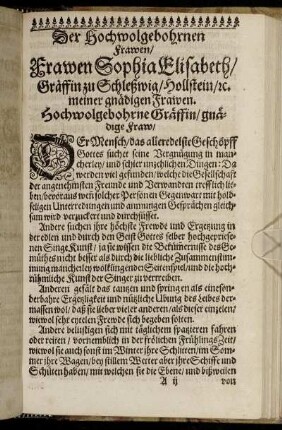 Der Hochwolgebohrnen
Frawen/
Frawen Sophia Elisabeth/
Gräffin zu Schleßwig/Hollstein/ꝛc.
meiner gnädigen Frawen.
Hochwolgebohrne Gräffin/gnä-
dige Fraw/
DEr Mensch/das alleredelste Geschöpff
Gottes suchet seine Vergnügung in man-
cherley/ und schier ungleichen Dingen: Da
werden viel gefunden/welche die Gesellschaft
der angenehmsten Freunde und Verwandten trefflich lie-
ben/bevoraus wenn solcher Personen Gegenwart mit hold-
seligen Unterredungen und anmutigen Gesprächen gleich-
sam wird verzuckert und durchsüsset.
Andere suchen ihre höchste Frewde und Ergetzung in
der edlen und durch den Geist Gottes selber hochgepriese-
nen Singe Kunst/ja sie wissen die Bekümmernisse des Ge-
mühtes nicht besser als durch die liebliche Zusammenstim-
mung mancherley wolklingender Seitenspiel/und die hoch-
rühmliche Kunst der Singer zu vertreiben.
Anderen gefält das tantzen und springen als eine son-
berbahre Ergetzligkeit und nützliche Ubung des Leibes der-
massen wol/ daß sie lieber vieler anderen/als dieser eintzelen/
wiewol sehr eyteler Frewde sich begeben solten.
Andere belustigen sich mit täglichem spazieren fahren
oder reiten/ vornemblich in der frölichen Frühlings Zeit/
wiewol sie auch sonst im Winter ihre Schlitten/im Som-
mer ihre Wagen/bey stillem Wetter aber ihre Schiffe und
Schüten haben/ mit welchen sie die Ebene/ und bißweilen
A ij von